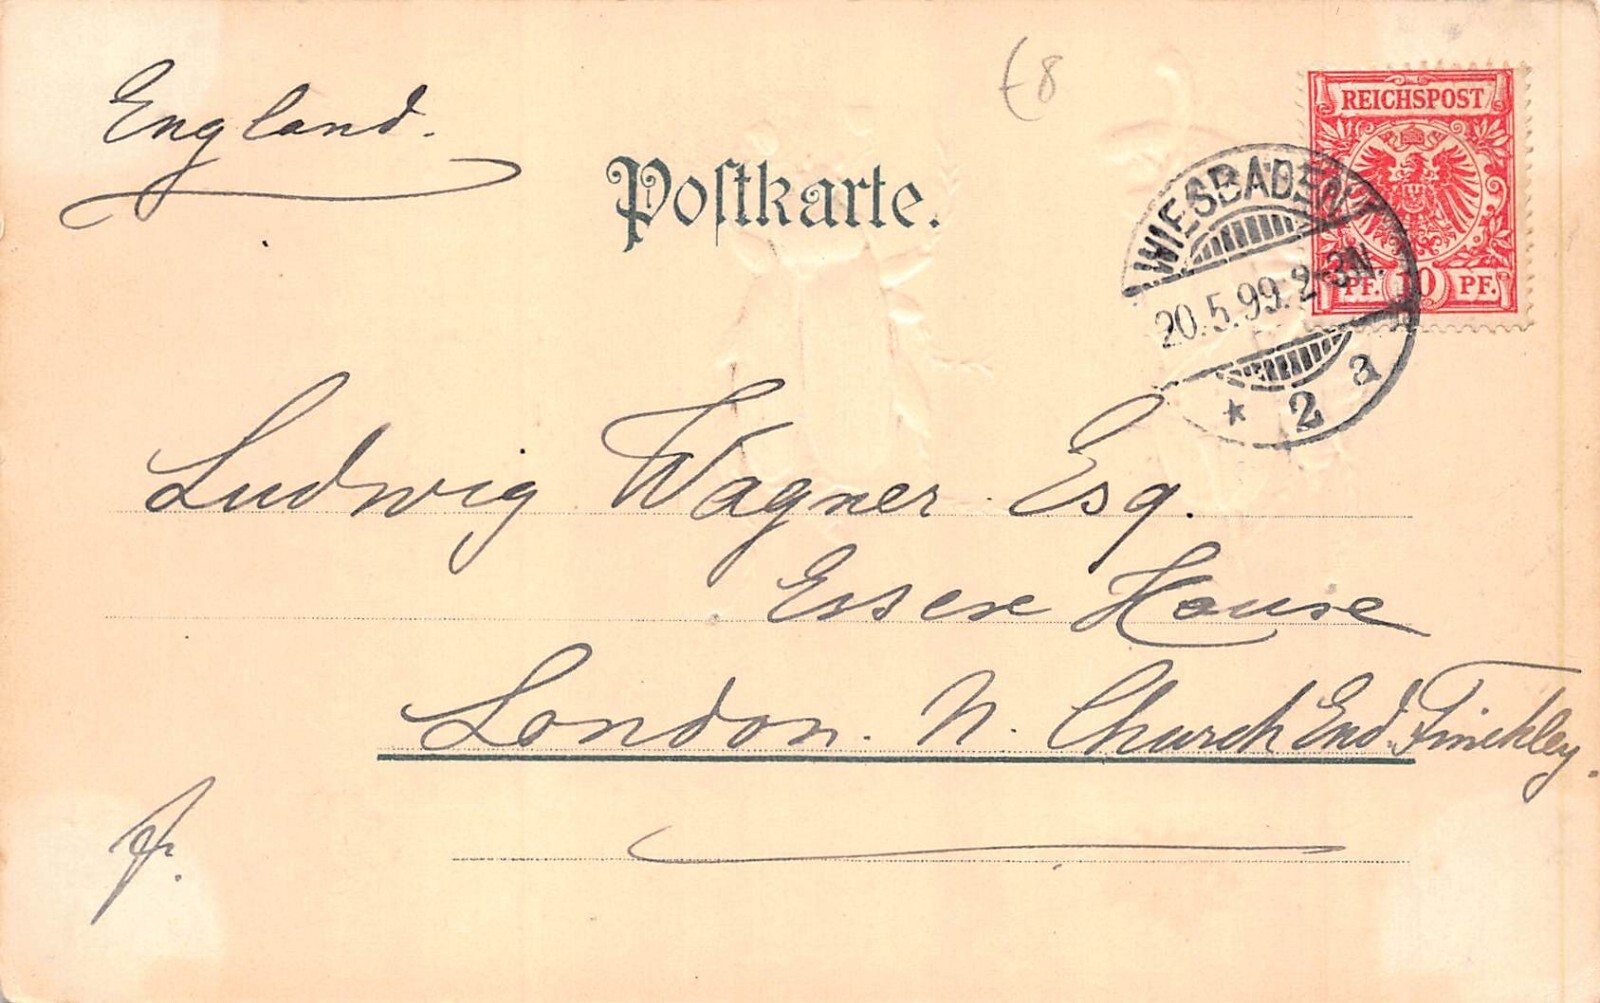 England.
£8
REICHSPOST
PF. 10 PF.
Poſtkarte.
WIESBADEN 1
20.5.99. 2-3N.
* 2 a
Ludwig Wagner Esq.
Essex House
London. N. Church End. Finchley.